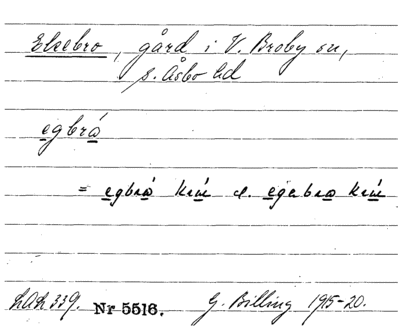 Ekebro, gård i V. Broby sn,
s. Åsbo hd
egbrá
= egbrá krú l. egabra krú
LAL 339. Nr 5516. G. Billing 1915-20.